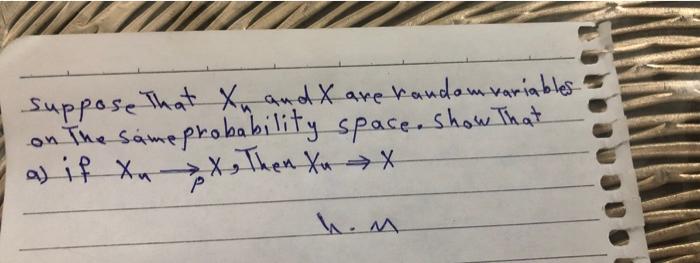 suppose That Xn and X are random variables
on The same probability space. show That
a) if Xn →p X, Then Xn → X
h.m